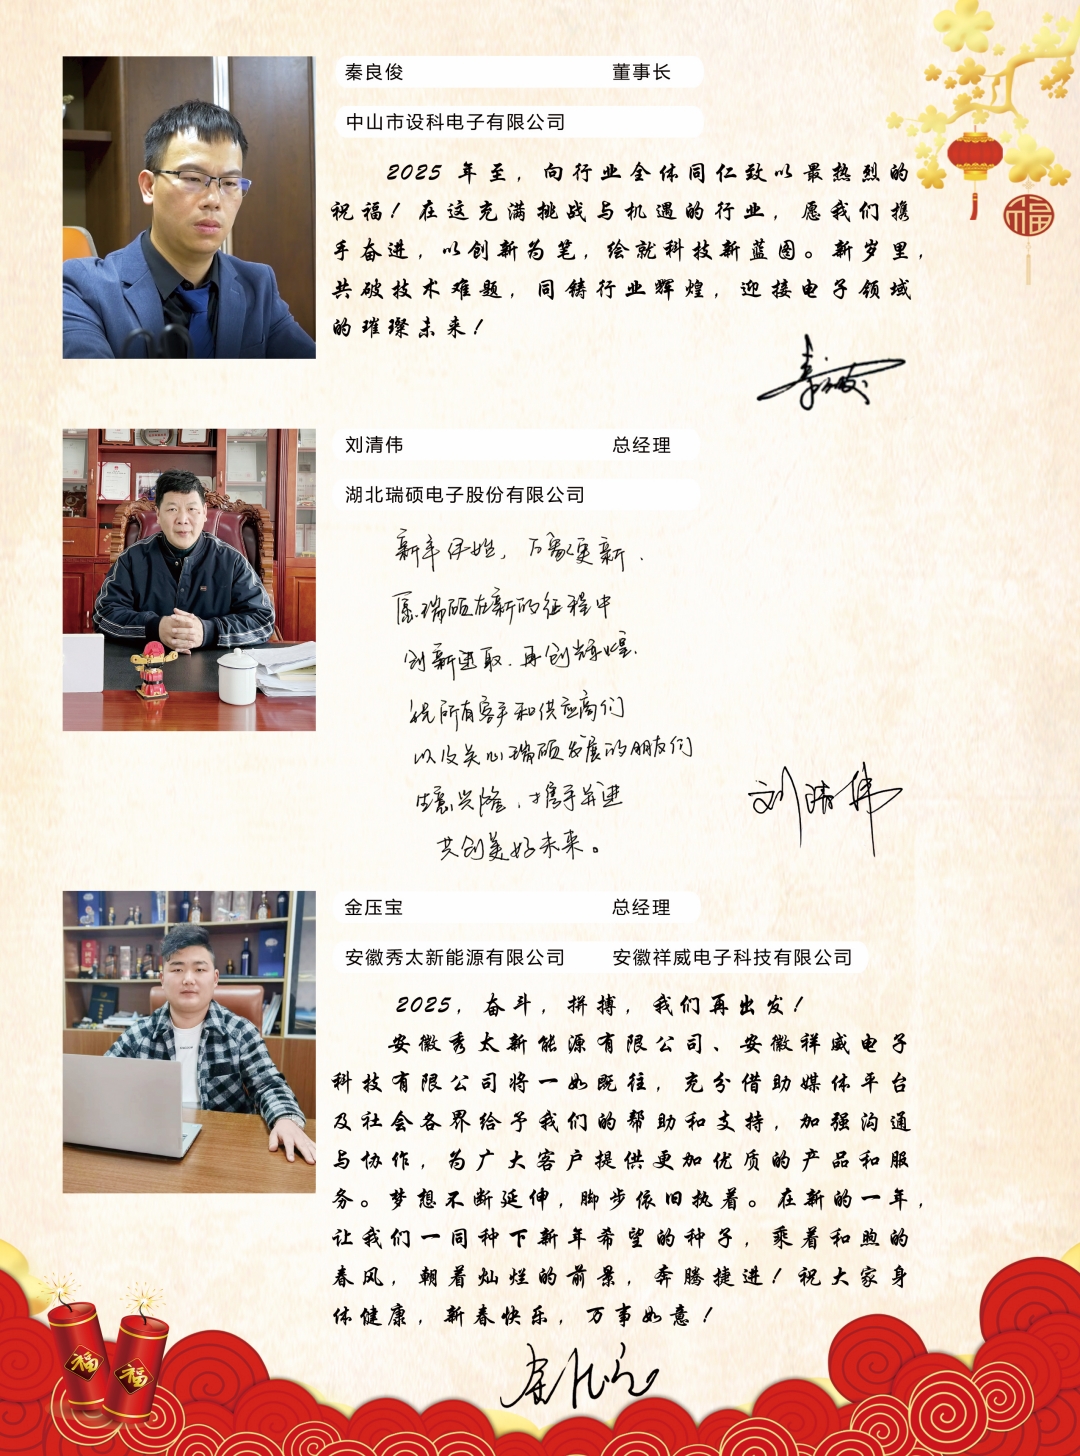 秦良俊 董事长
中山市设科电子有限公司
2025 年至，向行业全体同仁致以最热烈的
祝福！在这充满挑战与机遇的行业，愿我们携
手奋进，以创新为笔，绘就科技新蓝图。新岁里，
共破技术难题，同铸行业辉煌，迎接电子领域
的璀璨未来！
福
刘清伟 总经理
湖北瑞硕电子股份有限公司
新年伊始，万象更新．
愿瑞硕在新的征程中
创新进取．再创辉煌．
祝所有客户和供应商们
以及关心瑞硕发展的朋友们
生意兴隆．携手并进
共创美好未来。
刘清伟
金压宝 总经理
安徽秀太新能源有限公司 安徽祥威电子科技有限公司
2025，奋斗，拼搏，我们再出发！
安徽秀太新能源有限公司、安徽祥威电子
科技有限公司将一如既往，充分借助媒体平台
及社会各界给予我们的帮助和支持，加强沟通
与协作，为广大客户提供更加优质的产品和服
务。梦想不断延伸，脚步依旧执着。在新的一年，
让我们一同种下新年希望的种子，乘着和煦的
春风，朝着灿烂的前景，奔腾捷进！祝大家身
体健康，新春快乐，万事如意！
福
福